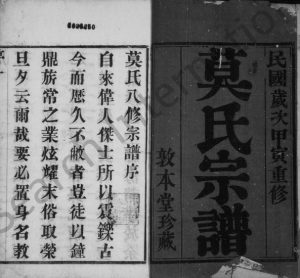 民國歲次甲寅重修
莫氏宗譜
敦本堂珍藏
莫氏八修宗譜序
自來偉人傑士所以震鑠古
今而歷久不敝者豈徒以鐘
鼎族常之業炫耀末俗取榮
旦夕云爾哉要必置身名教